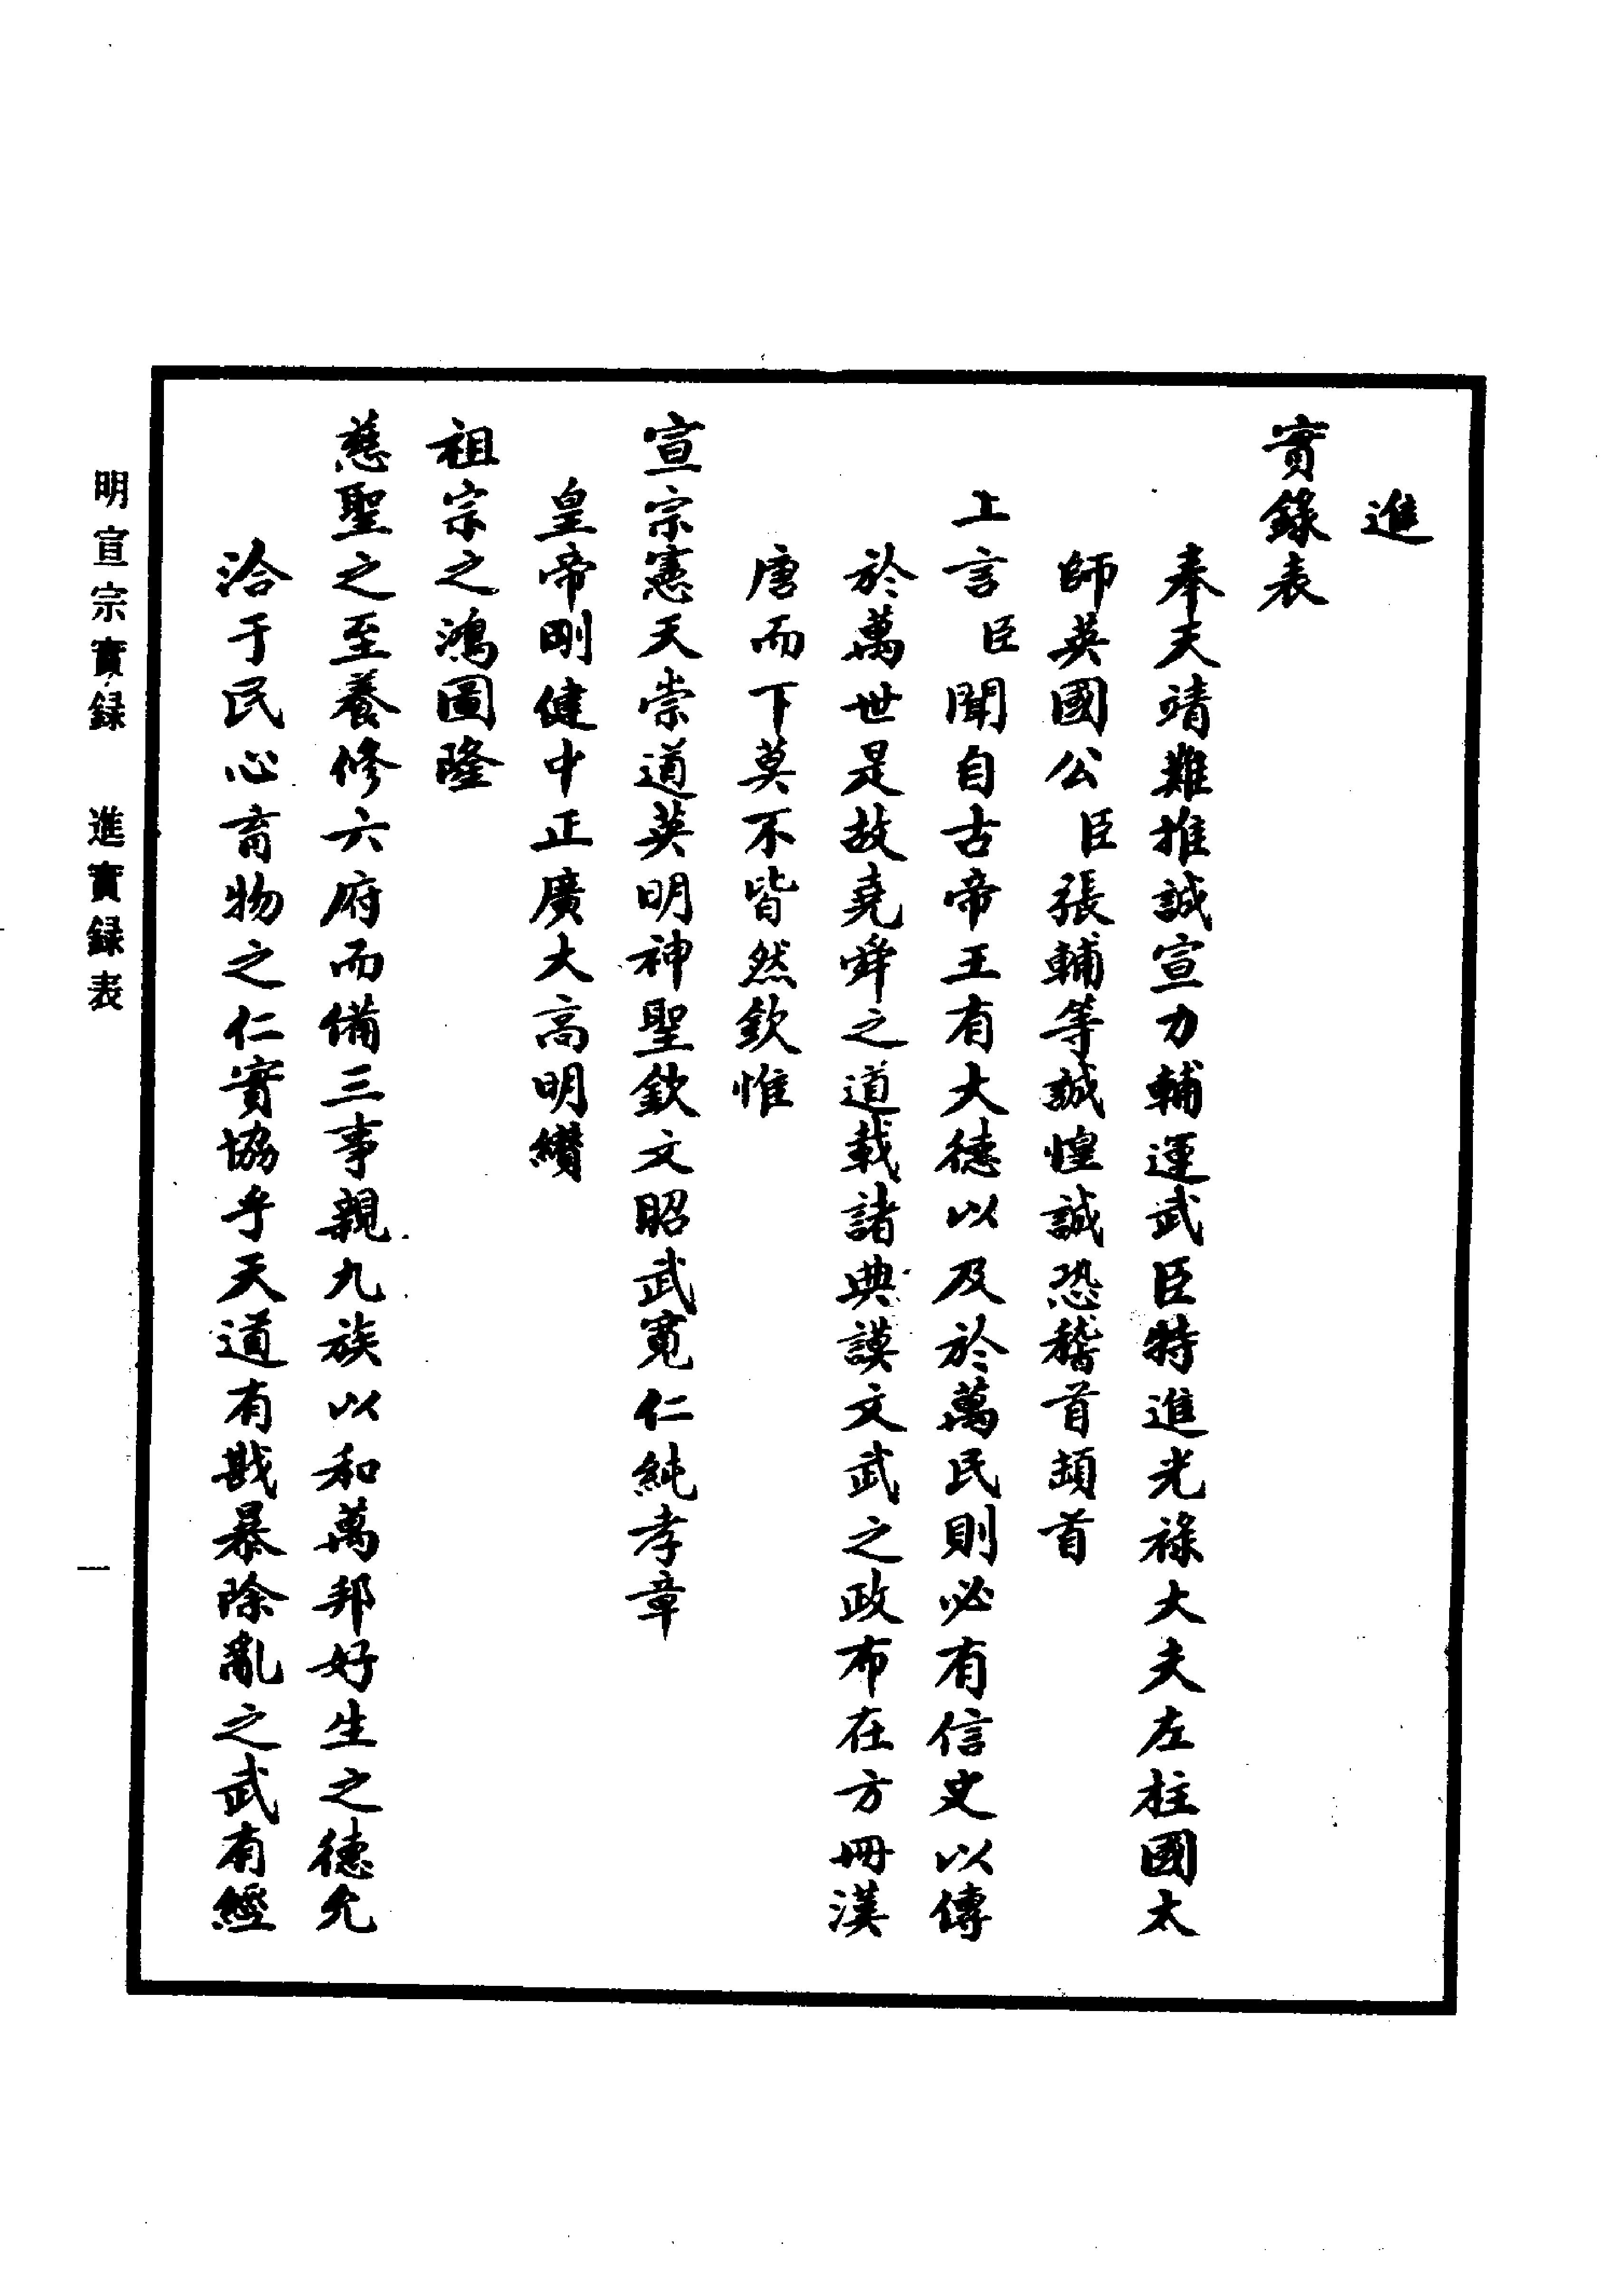 進
實錄表
奉天靖難推誠宣力輔運武臣特進光祿大夫左柱國太
師英國公臣張輔等誠惶誠恐稽首頓首
上言臣聞自古帝王有大德以及於萬民則必有信史以傳
於萬世是故堯舜之道載諸典謨文武之政布在方冊漢
唐而下莫不皆然欽惟
宣宗憲天崇道英明神聖欽文昭武寬仁純孝章
皇帝剛健中正廣大高明纘
祖宗之鴻圖隆
慈聖之至養修六府而備三事親九族以和萬邦好生之德允
洽于民心育物之仁實協乎天道有戡暴除亂之武有經
明宣宗實録　進實録表
一